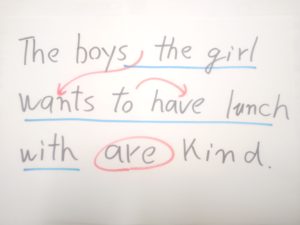 The boys the girl
wants to have lunch
with are kind.